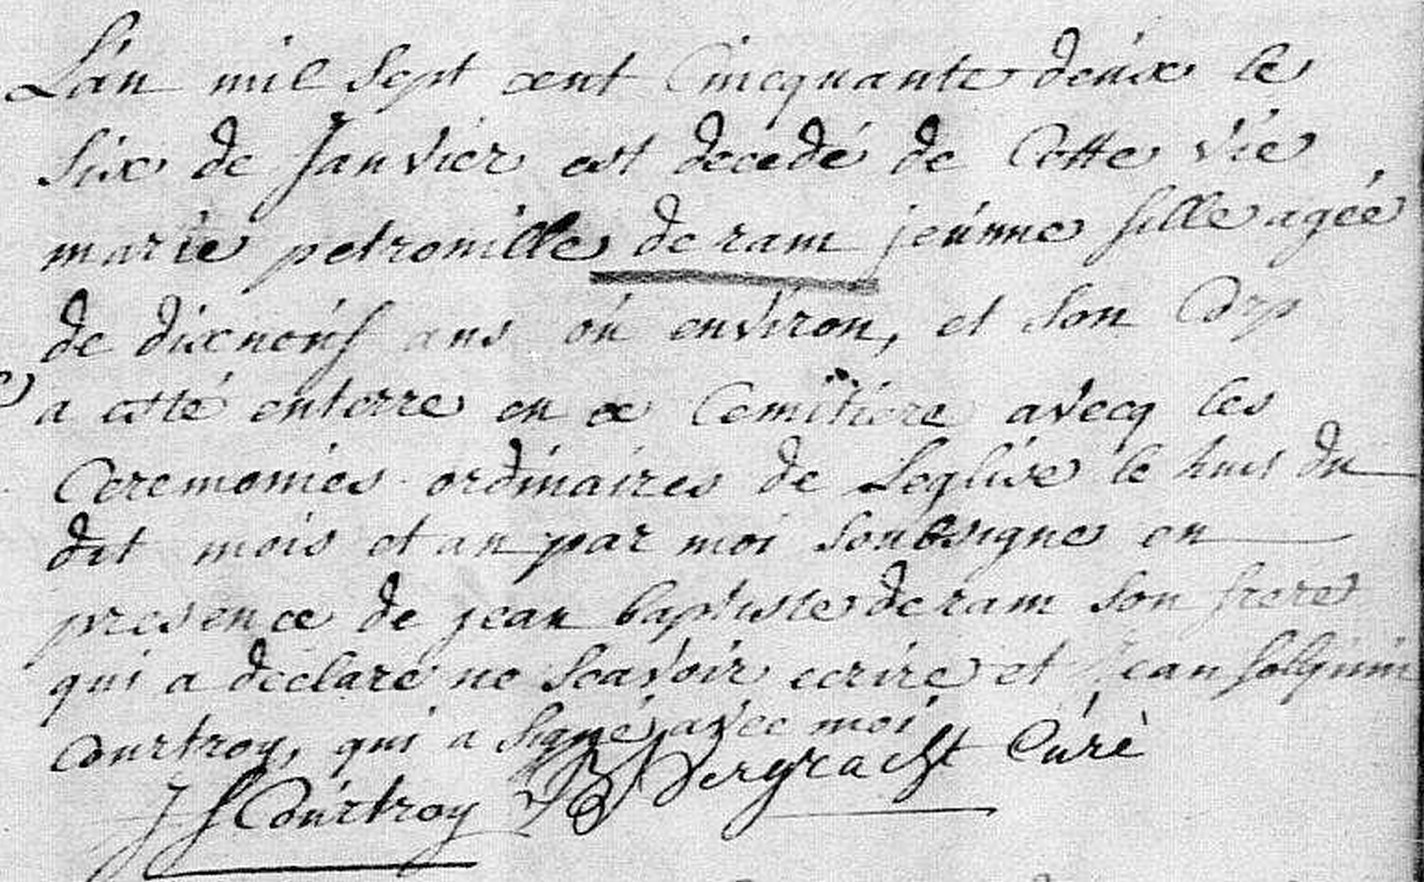 L'an mil sept cent Cincquante deux le
Six de Janvier est decedé de Cette vie
marie petronille de ram jeunne fille agée
de dixneuf ans ou environ, et son Corp
a esté enterre en ce Cemitiere avecq les
Ceremonies ordinaires de Leglise le huit du
dit mois et an par moi soubsigne en
presence de jean baptiste de ram son frere
qui a declaré ne scavoir ecrire et Jean
Courtroy, qui a signé avec moi
J f Courtroy Curè